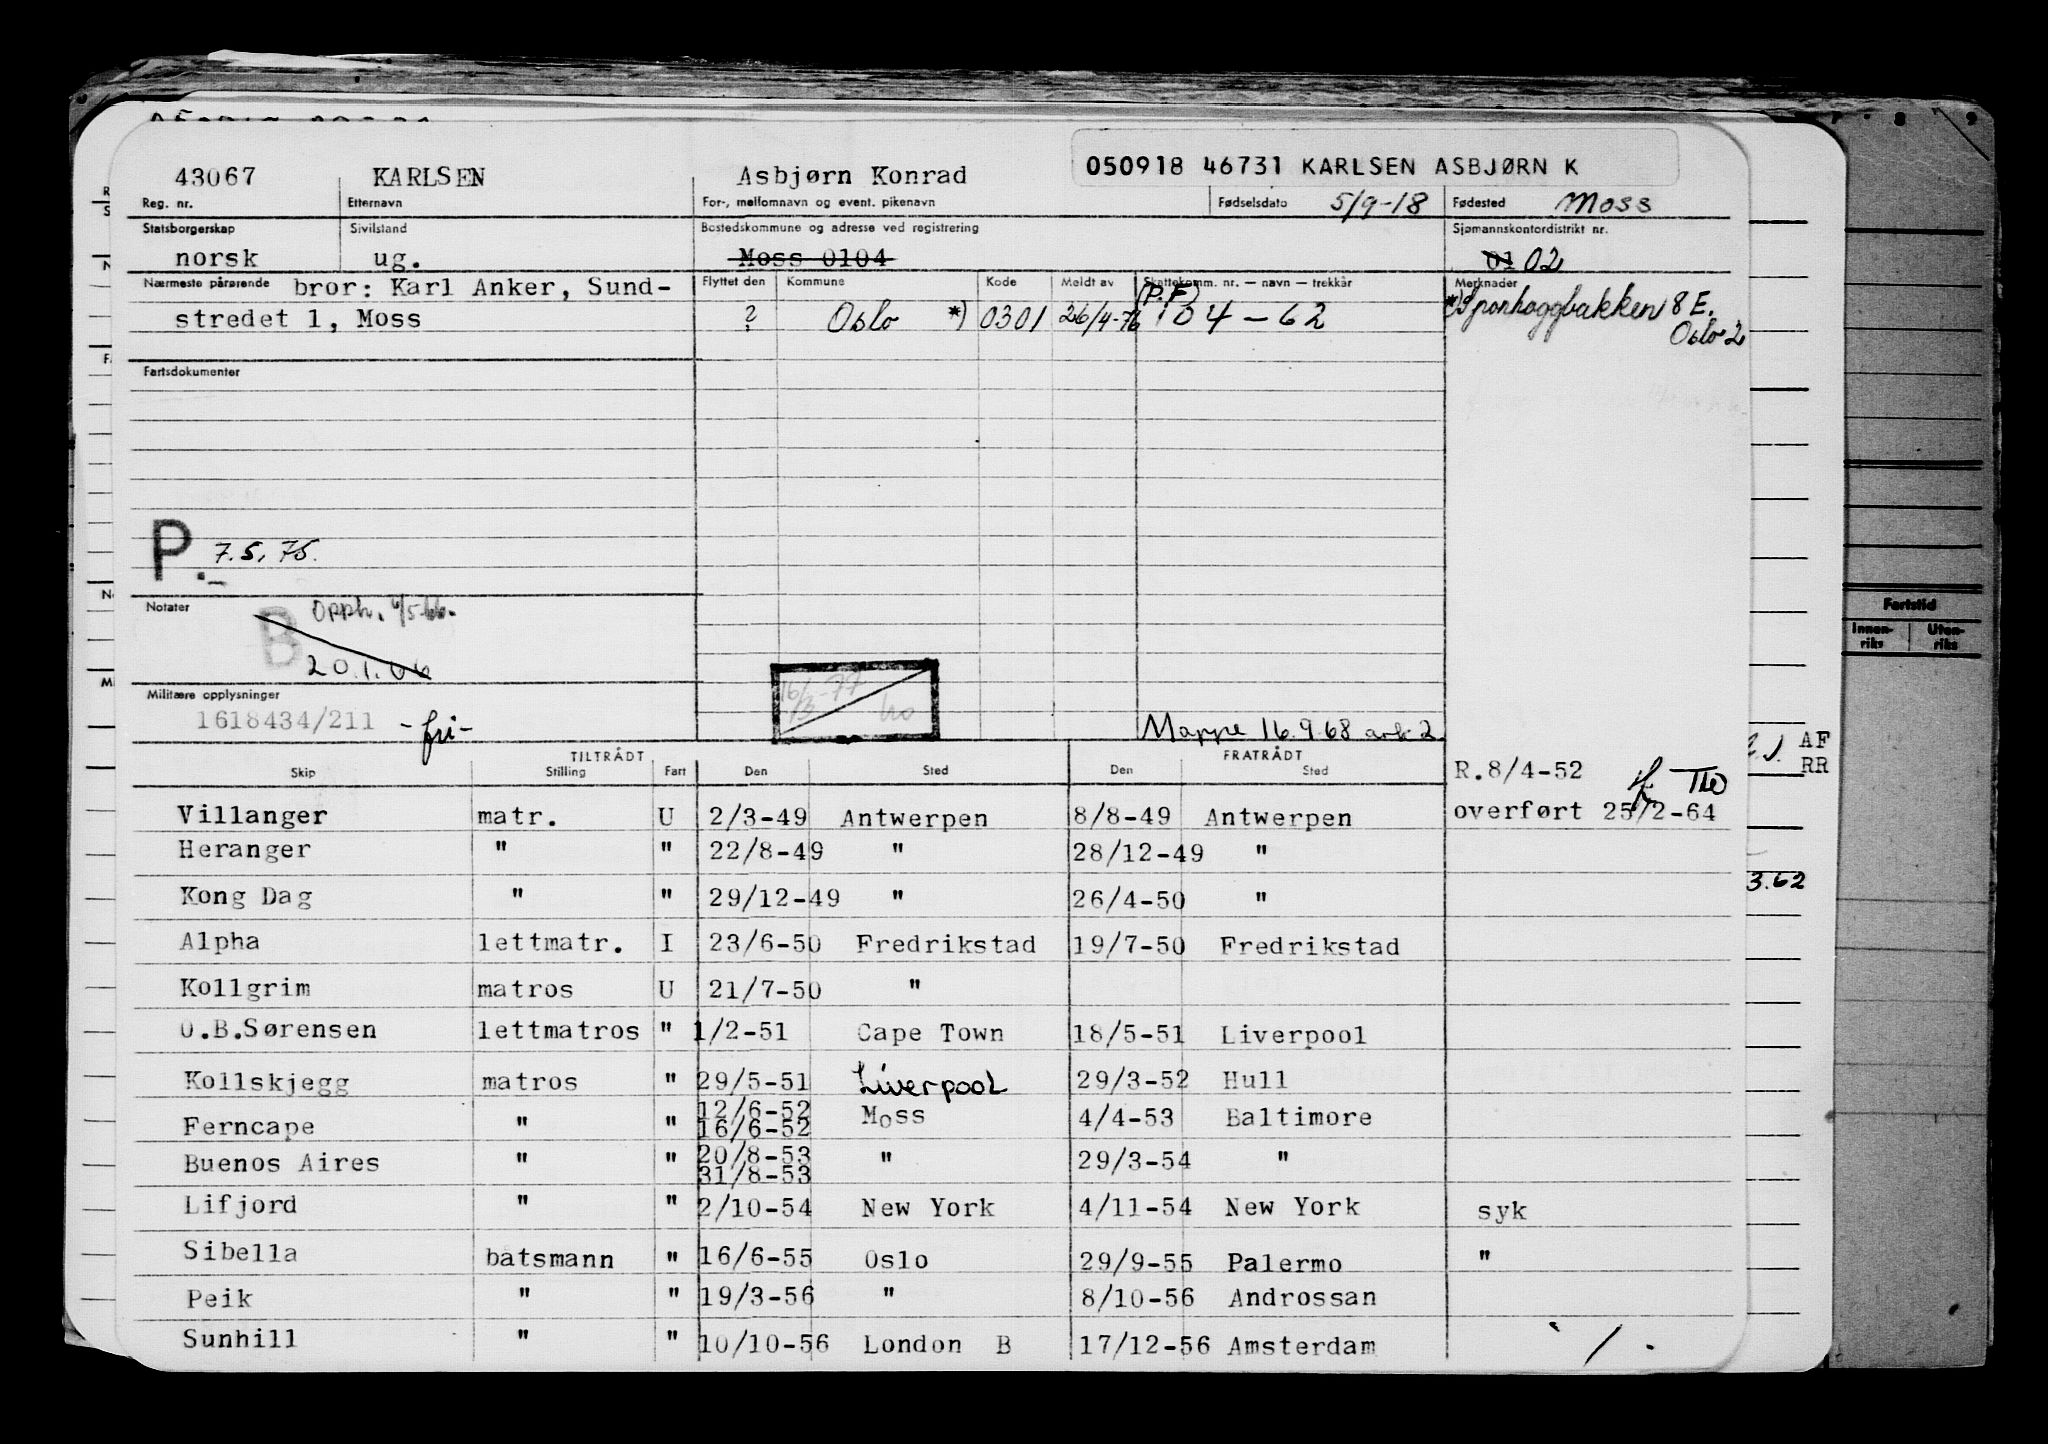 050918 46731 KARLSEN ASBJØRN K
43067 KARLSEN Asbjørn Konrad
Reg. nr. Etternavn For-, mellomnavn og event. pikenavn Fødselsdato 5/9-18 Fødested Moss
Statsborgerskap Sivilstand Bostedskommune og adresse ved registrering Sjømannskontordistrikt nr.
norsk ug. Moss 0104 01 02
Nærmeste pårørende bror: Karl Anker, Sund- Flyttet den Kommune Kode Meldt av Skattekomm. nr. — navn — trekkår Merknader
stredet 1, Moss ? Oslo *) 0301 26/4-76 (P.F) 104-62 *) Sponhoggbakken 8 E.
Oslo 2
Fartsdokumenter
P. 7.5.75.
Notater Opph. 4/5-66.
B 20.1.66
Militære opplysninger 16/3-77
1618434/211 -fri- Mappe 16.9.68 ark 2.
TILTRÅDT FRATRÅDT
Skip Stilling Fart Den Sted Den Sted R.8/4-52
Villanger matr. U 2/3-49 Antwerpen 8/8-49 Antwerpen overført 25/2-64
Heranger " " 22/8-49 " 28/12-49 "
Kong Dag " " 29/12-49 " 26/4-50 "
Alpha lettmatr. I 23/6-50 Fredrikstad 19/7-50 Fredrikstad
Kollgrim matros U 21/7-50 "
O.B.Sørensen lettmatros " 1/2-51 Cape Town 18/5-51 Liverpool
Kollskjegg matros " 29/5-51 Liverpool 29/3-52 Hull
12/6-52
Ferncape " " 16/6-52 Moss 4/4-53 Baltimore
20/8-53
Buenos Aires " " 31/8-53 " 29/3-54 "
Lifjord " " 2/10-54 New York 4/11-54 New York syk
Sibella båtsmann " 16/6-55 Oslo 29/9-55 Palermo "
Peik " " 19/3-56 " 8/10-56 Androssan
Sunhill " " 10/10-56 London B 17/12-56 Amsterdam
AF
RR
3.62
8 9
Fartstid
Innen-
riks
Uten-
riks